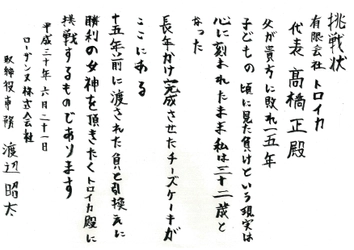 挑戦状
有限会社 トロイカ
代表 高橋正殿
父が貴方に敗れ一五年
子どもの頃に見た負けという現実は
心に刻まれたまま私は三十二歳と
なった
長年かけ完成させたチーズケーキが
ここにある
十五年前に渡された負と引換えに
勝利の女神を頂きたくトロイカ殿に
挑戦するものであります
平成三十年六月二十一日
ローデンス株式会社
取締役専務 渡辺昭太